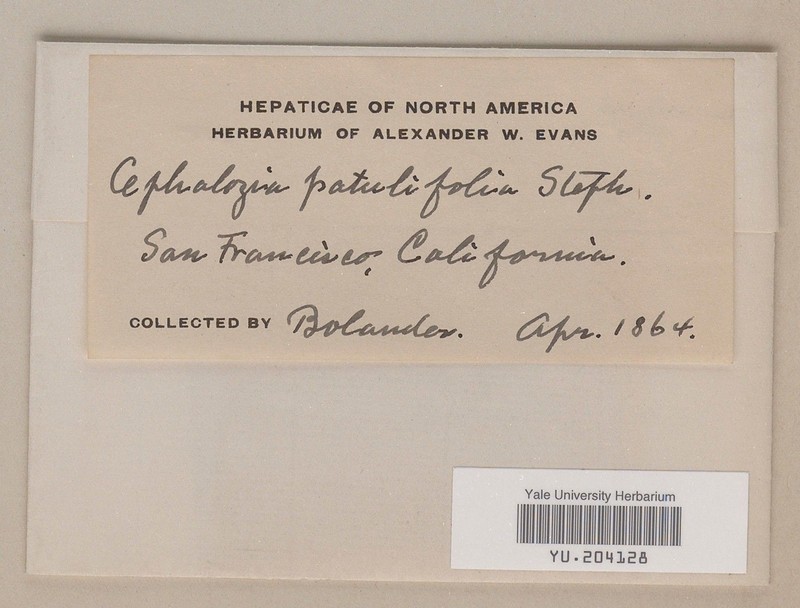 HEPATICAE OF NORTH AMERICA
HERBARIUM OF ALEXANDER W. EVANS
Cephalozia patulifolia Steph.
San Francisco, California.
COLLECTED BY Bolander. Apr. 1864.
Yale University Herbarium
YU.204128